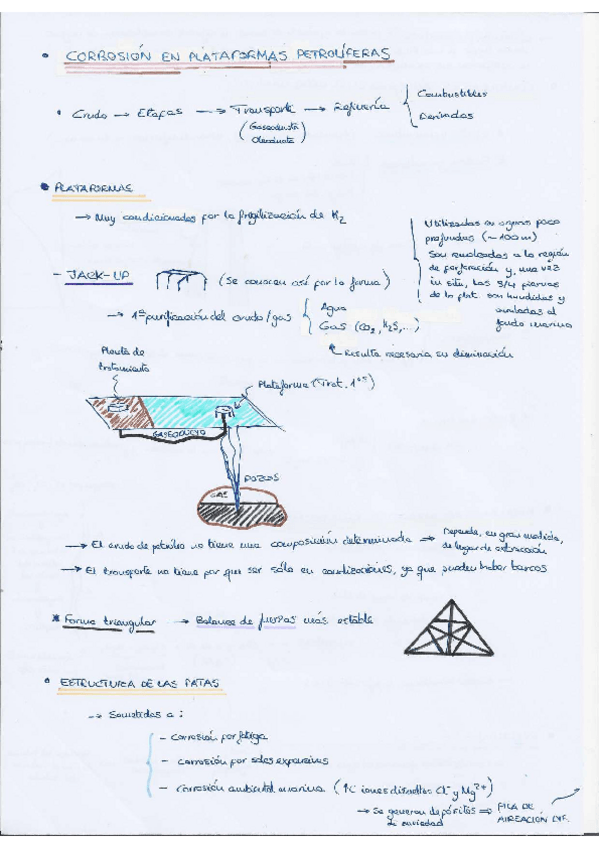 • CORROSIÓN EN PLATAFORMAS PETROLÍFERAS
• Crudo → Etapas → Transporte → Refinería
(Gaseoducto
Oleoducto)
Combustibles
Derivados
• PLATAFORMAS
→ Muy condicionadas por la fragilización de H2
- JACK-UP (Se conocen así por la forma)
Utilizadas en aguas poco
profundas (~100m)
Son remolcadas a la región
de perforación y, una vez
in situ, las 3/4 piernas
de la plat. son hundidas y
ancladas al
fondo marino
→ 1ª purificación del crudo/gas
Agua
Gas (CO2, H2S,...)
Resulta necesaria su eliminación
Planta de
tratamiento
Plataforma (Trat. 1os)
GASEODUCTO
POZOS
GAS
→ El crudo de petróleo no tiene una composición determinada → Depende, en gran medida,
de lugar de extracción
→ El transporte no tiene por que ser sólo en canalizaciones, ya que pueden haber barcos
* Forma triangular → Balance de fuerzas más estable
• ESTRUCTURA DE LAS PATAS
→ Sometidas a:
- Corrosión por fatiga
- Corrosión por sales expansivas
- Corrosión ambiental marina (↑C iones disueltos Cl- y Mg2+)
→ Se generan depósitos ⇒ PILA DE
de suciedad AIREACIÓN DIF.